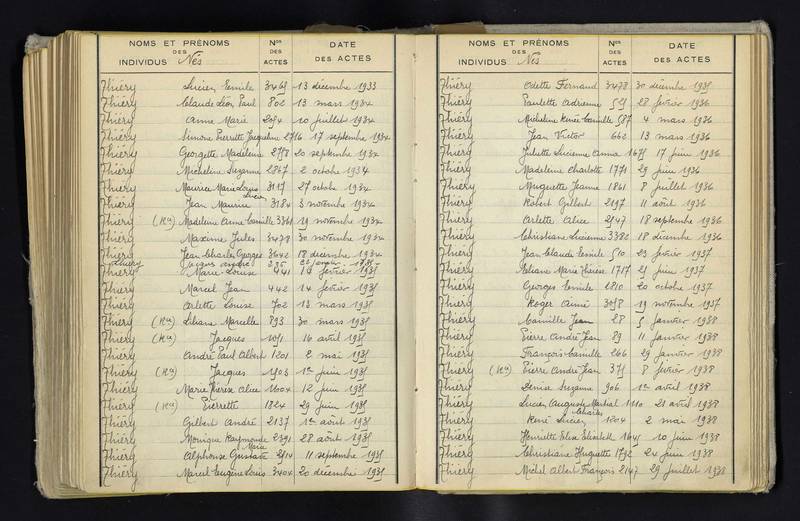 NOMS ET PRÉNOMS DES INDIVIDUS Nés Nos DES ACTES DATE DES ACTES
Thiéry Lucien Emile 3465 13 décembre 1933
Thiéry Claude Léon Paul 802 13 mars 1934
Thiéry Anne Marie 2054 10 juillet 1934
Thiéry Simone Pierrette Jacqueline 2716 17 septembre 1934
Thiéry Georgette Madeleine 2758 20 septembre 1934
Thiéry Micheline Suzanne 2867 2 octobre 1934
Thiéry Maurice Marie Louis 3117 27 octobre 1934
Thiéry Jean Maurice Lucien 3184 3 novembre 1934
Thiéry (Ku) Madeleine Anne Camille 3361 19 novembre 1934
Thiéry Maxime Jules 3479 30 novembre 1934
Thiéry Jean Charles Georges 3642 18 décembre 1934
Thiéry Jacques André 235 22 janvier 1935
Thiéry Marie Louise 441 14 février 1935
Thiéry Marcel Jean 442 14 février 1935
Thiéry Arlette Louise 702 13 mars 1935
Thiéry (Ku) Liliane Marcelle 893 30 mars 1935
Thiéry (Ku) Jacques 1051 16 avril 1935
Thiéry André Paul Albert 1201 2 mai 1935
Thiéry (Ku) Jacques 1503 1er juin 1935
Thiéry Marie Thérèse Alice 1604 12 juin 1935
Thiéry (Ku) Pierrette 1824 29 juin 1935
Thiéry Gilbert André 2137 1er août 1935
Thiéry Monique Raymonde Marie 2391 28 août 1935
Thiéry Alphonse Gustave 2514 11 septembre 1935
Thiéry Marcel Eugène Louis 3404 20 décembre 1935
NOMS ET PRÉNOMS DES INDIVIDUS Nés Nos DES ACTES DATE DES ACTES
Thiéry Odette Fernand 3478 30 décembre 1935
Thiéry Paulette Adrienne 525 28 février 1936
Thiéry Micheline Renée Camille 587 4 mars 1936
Thiéry Jean Victor 662 13 mars 1936
Thiéry Juliette Lucienne Anna 1675 17 juin 1936
Thiéry Madeleine Charlotte 1771 29 juin 1936
Thiéry Muguette Jeanne 1861 8 juillet 1936
Thiéry Robert Gilbert 2197 11 août 1936
Thiéry Arlette Alice 2547 18 septembre 1936
Thiéry Christiane Lucienne 3382 18 décembre 1936
Thiéry Jean Claude Emile 510 23 février 1937
Thiéry Liliane Marie Thérèse 1717 25 juin 1937
Thiéry Georges Emile 2810 20 octobre 1937
Thiéry Roger Aimé 3058 19 novembre 1937
Thiéry Camille Jean 28 5 janvier 1938
Thiéry Pierre André Jean 89 11 janvier 1938
Thiéry François Camille 266 29 janvier 1938
Thiéry (Ku) Pierre André Jean 375 8 février 1938
Thiéry Denise Suzanne 906 1er avril 1938
Thiéry Lucien Auguste Martial 1110 21 avril 1938
Thiéry René Lucien Charles 1204 2 mai 1938
Thiéry Henriette Elisa Elisabeth 1645 10 juin 1938
Thiéry Christiane Huguette 1792 24 juin 1938
Thiéry Michel Albert François 2147 29 juillet 1938